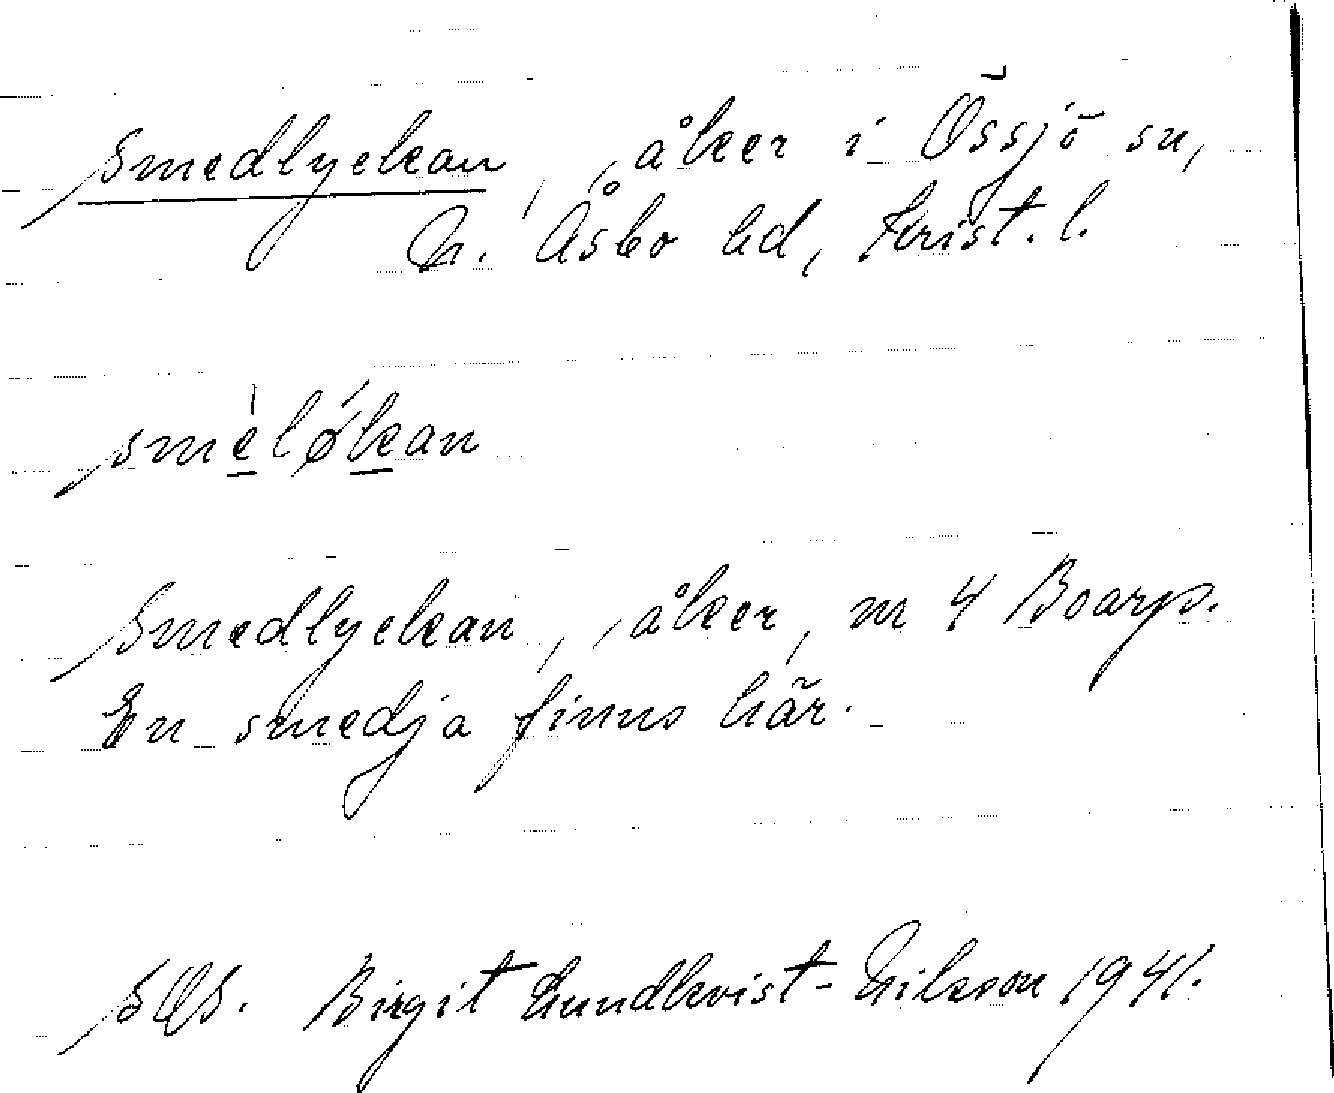 Smedlyckan, åker i Össjö sn,
N. Åsbo hd, Krist. l.
smèløkan
Smedlyckan, åker, nr 4 Boarp.
En smedja finns här.
Birgit Lundkvist-Nilsson 1941.